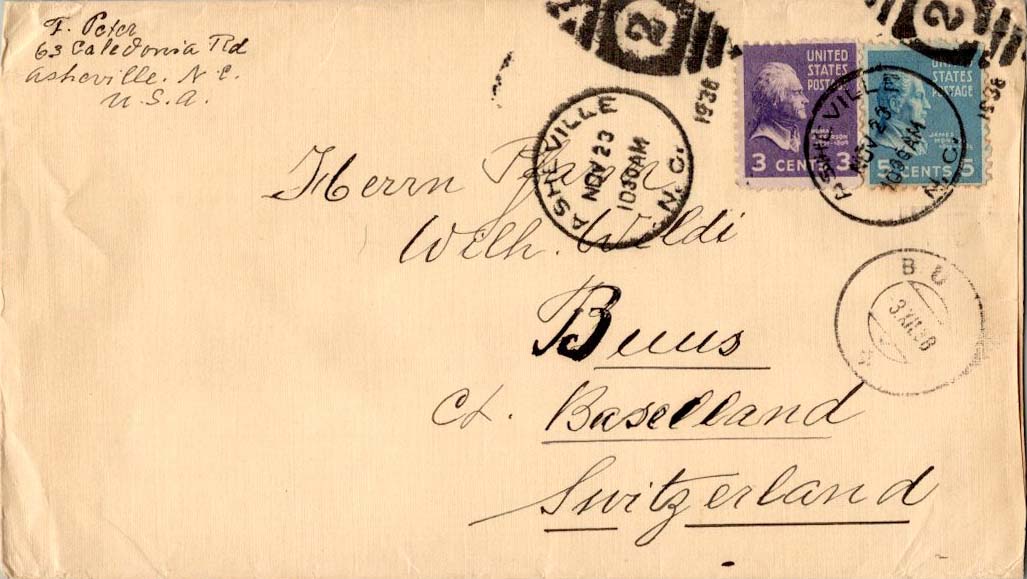 F. Peter
63 Caledonia Rd
Asheville. N. C.
U. S. A.
2
2
1938
1938
UNITED STATES POSTAGE
3 CENTS 3
UNITED STATES POSTAGE
JAMES
5 CENTS 5
ASHEVILLE N.C.
NOV 23
10 30 AM
ASHEVILLE N.C.
NOV 23
10 30 AM
Herrn Pfarrer
Wilh. Weldi
BU
3.XII.38
Buus
Ct. Baselland
Switzerland